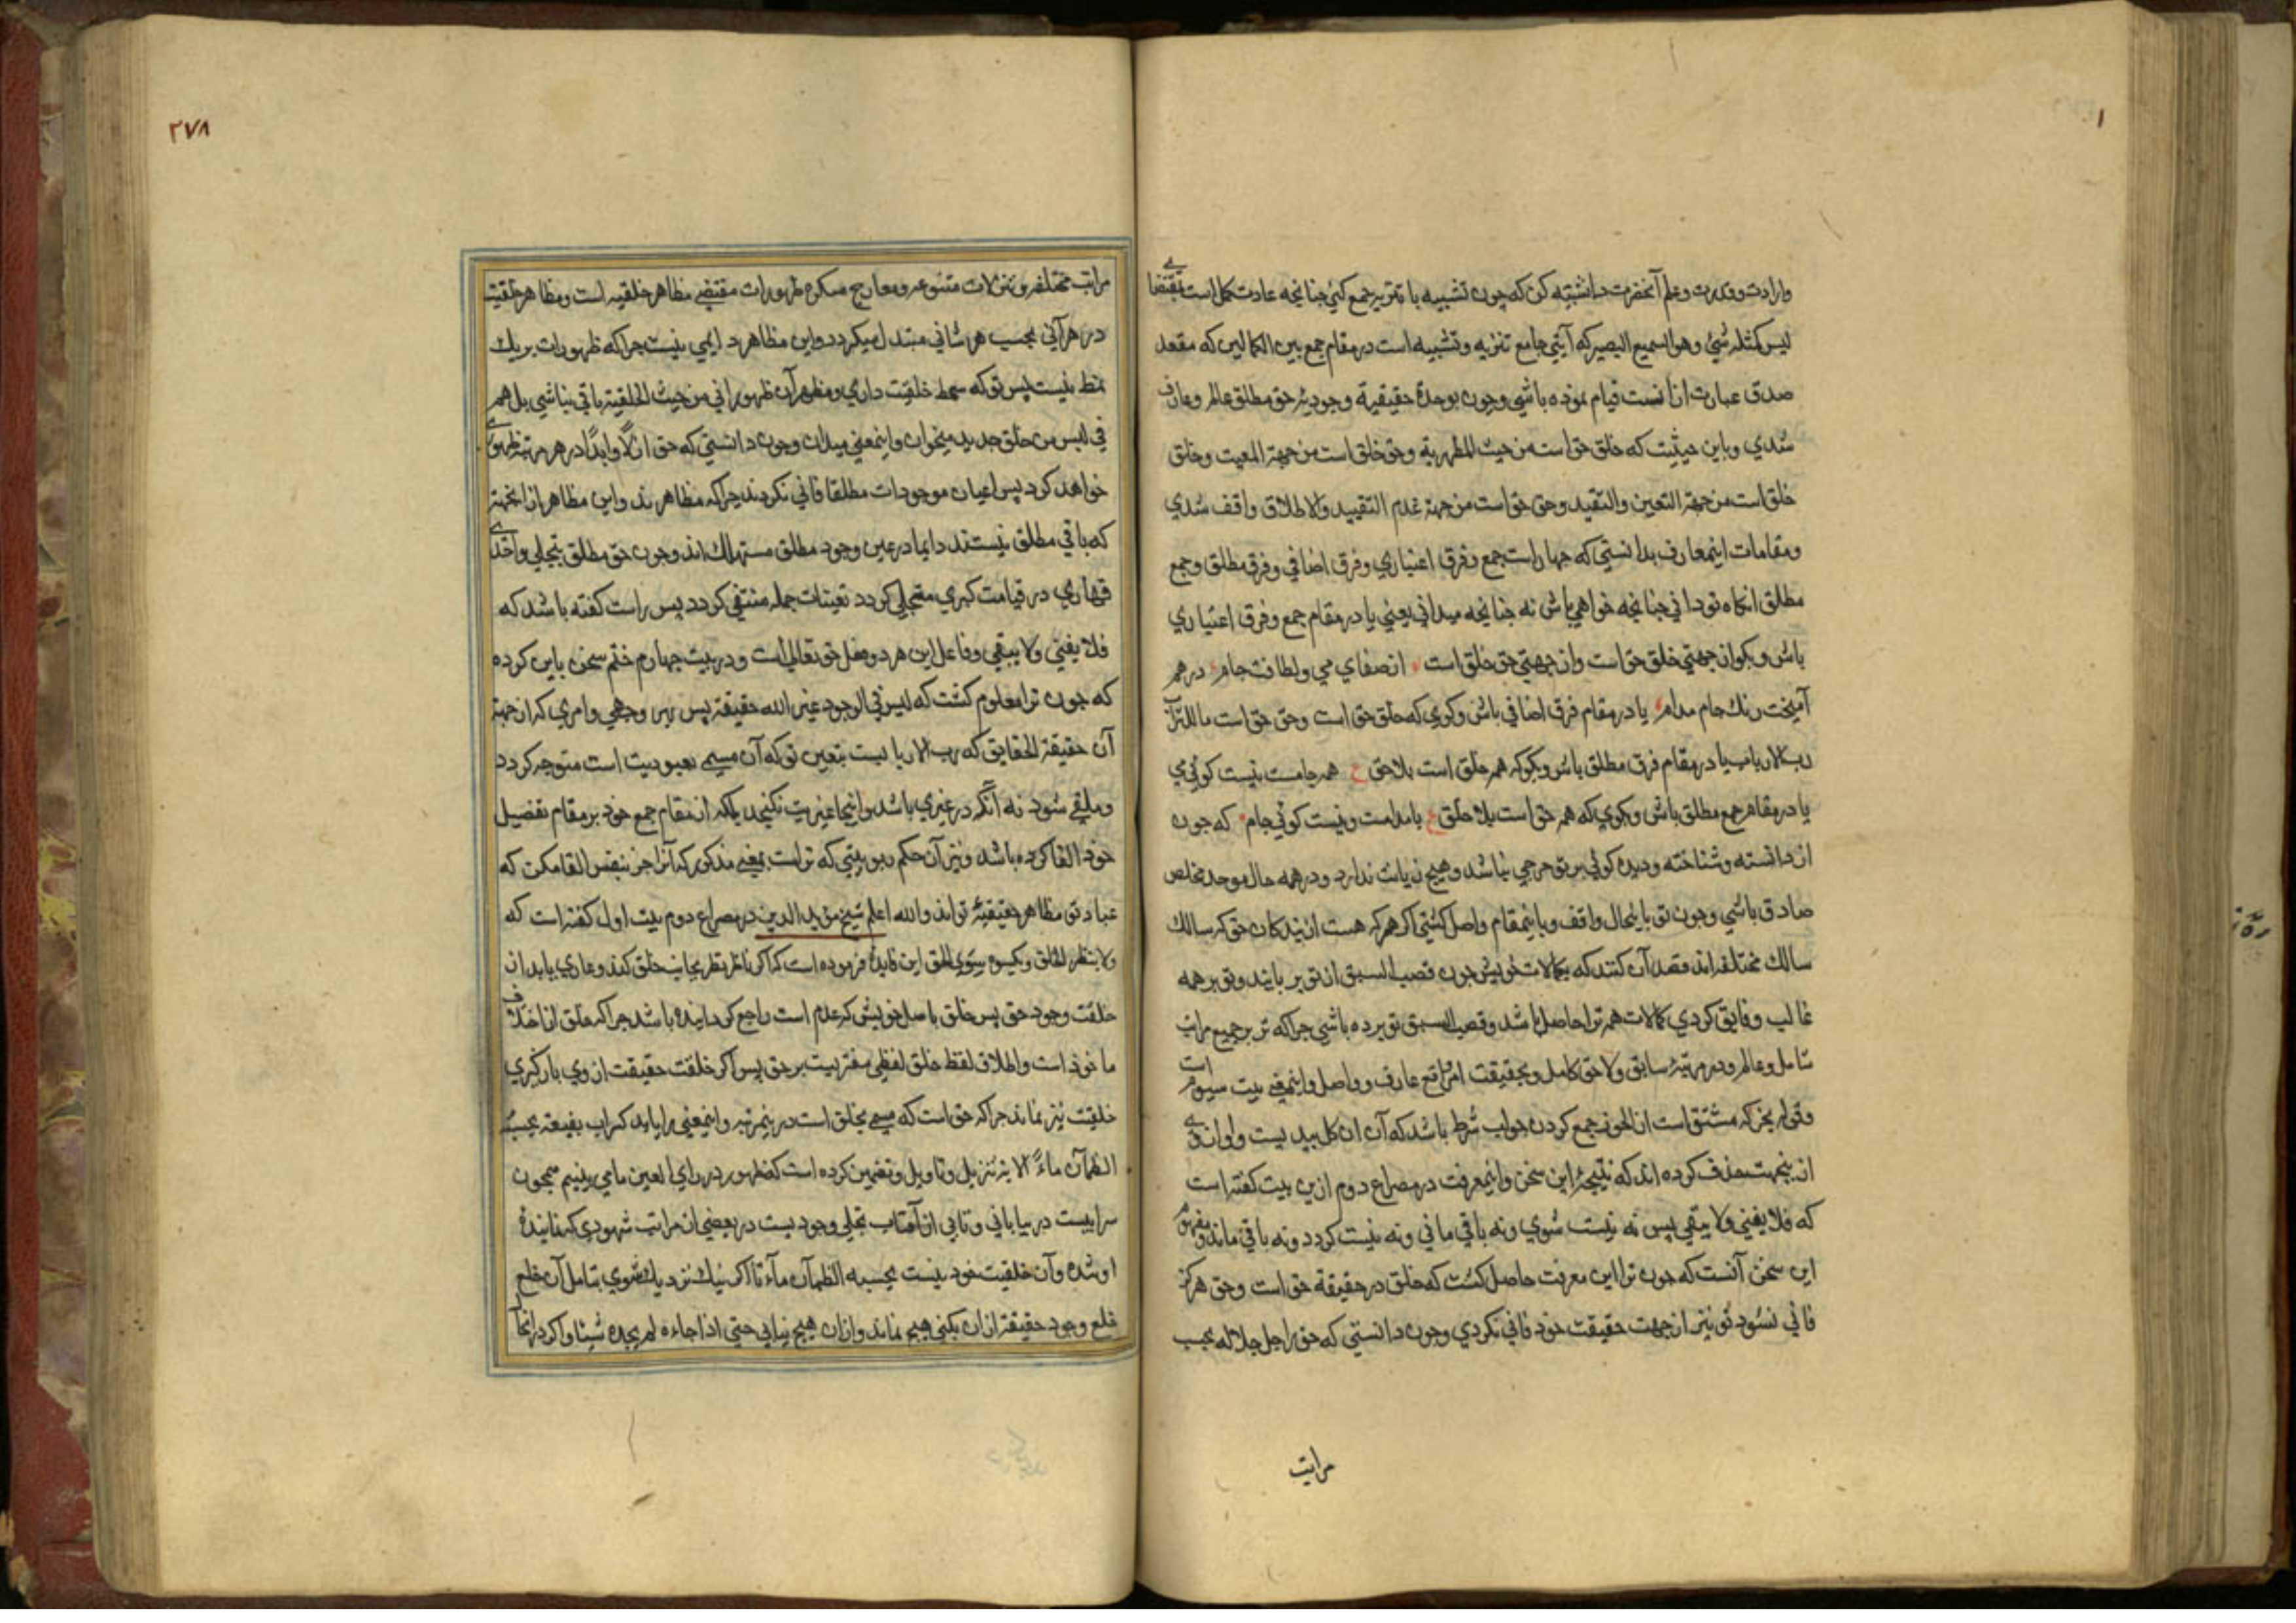 ۱
وارادت وقدرت وعلم آنحضرت دانسته کن که چون تشبیه با تنزیه جمع کنی چنانچه عادت کمل است بمقتضای
لیس کمثله شیٔ وهو السمیع البصیر که آیتی جامع تنزیه وتشبیه است در مقام جمع بین الکمالین که مقعد
صدق عبارت از انست قیام نموده باشی وچون بوحدة حقیقیة وجودیهٔ حق مطلق عالم وعارف
شدی وباین حیثیت که خلق حق است من حیث المظهریة وحق خلق است من جهة المعیت وخلق
خلق است من جهة التعین والتقید وحق حق است من جهة عدم التقیید والاطلاق واقف شدی
ومقامات اینمعارف بدانستی که چهار است جمع وفرق اعتباری وفرق اضافی وفرق مطلق وجمع
مطلق انکاه تو دانی چنانچه خواهی باش نه چنانچه میدانی یعنی یا در مقام جمع وفرق اعتباری
باش وبکو از جهتی خلق حق است واز جهتی حق خلق است از صفای می ولطافت جام در هم
آمیخت رنك جام مدام یا در مقام فرق اضافی باش وکوی که خلق خلق است وحق حق است ما للتراب
رب الارباب یا در مقام فرق مطلق باش وبکو که همه خلق است بلا حق ع همه جامست نیست کوئی می
یا در مقام جمع مطلق باش وبکوی که همه حق است بلا خلق ع یا مدامست ونیست کوئی جام که چون
از دانسته وشناخته ودیده کوئی بر تو حرجی نباشد وهیچ زیانت ندارد ودر همه حال موحد مخلص
صادق باشی وچون تو باینحال واقف وباینمقام واصل کشتی اکر هر که هست از بندکان حق که سالك
سالك مختلفه اند قصد آن کنند که بکمالات خویش چون قصب السبق از تو بر بایند وتو بر همه
غالب وفایق کردی کمالات همه ترا حاصل باشد وقصب السبق تو برده باشی چراکه تو بر جمیع مراتب
شامل وعالم ودر مرتبهٔ سابق ولاحق کامل وبحقیقت امر واقع عارف وواصل واینمعنی بیت سیوم است
وقوله بحز که مشتق است از الحوز جمع کردن جواب شرط باشد که آن ان کل یبد یست وواو از وی
از ینجهت حذف کرده اند که نتیجهٔ این سخن واینمعرفت در مصراع دوم ازین بیت کفته است
که فلا یفنی ولا یبقی پس نه نیست شوی ونه باقی مانی ونه نیست کردد ونه باقی ماند ومفهوم
این سخن آنست که چون ترا این معرفت حاصل کشت که خلق در حقیقة حق است وحق هرکز
فانی نشود تو نیز از جهت حقیقت خود فانی نکردی وچون دانستی که حق را جل جلاله بحسب
مراتب
۲۷۸
مراتب مختلفه وتنزلات متنوعه ومعارج متکثره ظهورات مقتضی مظاهر خلقیه است ومظاهر خلقیت
در هر آنی بحسب هر شانی مبتدل میکردد واین مظاهر دایمی نیست چراکه ظهورات بر یك
نمط نیست پس تو که سمط خلقیت داری ومظهر آن ظهور انی من حیث الخلقیة باقی نباشی بل هم
فی لبس من خلق جدید میخوان واینمعنی میدان وچون دانستی که حق ازلًا وابدًا در هر مرتبه ظهوری
خواهد کرد پس اعیان موجودات مطلقا فانی نکردند چراکه مظاهر ند واین مظاهر از انجهة
که باقی مطلق نیستند دایما در عین وجود مطلق مستهلك اند وچون حق مطلق بتجلی واحدی
قهاری در قیامت کبری متجلی کردد تعینات جمله منتفی کردد پس راست کفته باشد که
فلا یفنی ولا یبقی وفاعل این هر دو فعل حق تعالی است ودر بیت چهارم ختم سخن باین کرده
که چون ترا معلوم کشت که لیس فی الوجود غیر الله حقیقة پس هر وجهی وامری که از جهة
آن حقیقة الحقایق که رب الاربا بست بتعین تو که آن مسمی بعبودیت است متوجه کردد
وملقی شود نه آنکه در غیری باشد واینجا غیریت نکنجد بلکه از مقام جمع خود بر مقام تفصیل
خود القا کرده باشد ونیز آن حکم ربوبیتی که تراست بمعنی مذکور که آنرا جز بنفس القا مکن که
عباد تو مظاهر حقیقیهٔ تو اند والله اعلم شیخ مؤید الدین در مصراع دوم بیت اول کفته است که
ولا ینظر للخلق ویکسوه سوی الحق این فایدهٔ فرموده است که اکر ناظر نظر بجانب خلق کند وعاری یابد از
خلقت وجود حق پس خلق باصل خویش که عدم است راجع کردانیده باشد چراکه خلق از اختلاف
ماخوذ است واطلاق لفظ خلق لفظی مفتریست بر حق پس اکر خلقت حقیقت از وی بازکیری
خلقیت نیز نماند چراکه حق است که مسمی بخلق است در ینمرتبه واینمعنی را یابد کسراب بقیعة یحسبه
الظمآن ماءً الایة تنزیل وتاویل وتضمین کرده است که ظهور در رای العین ما می بینیم همچون
سرابیست در بیابانی وتابی از آفتاب تجلی وجودیست در بعضی از مراتب شهودی که نمایندهٔ
او شده وآن خلقیت خود نیست یحسبه الظمآن مآءً تا اکر نیك نزدیك شوی بتامل آن خلع
خلع وجود حقیقة از ان بکنی هیچ نماند واز ان هیچ نیابی حتی اذا جاءه لم یجده شیئا واکر در انجا